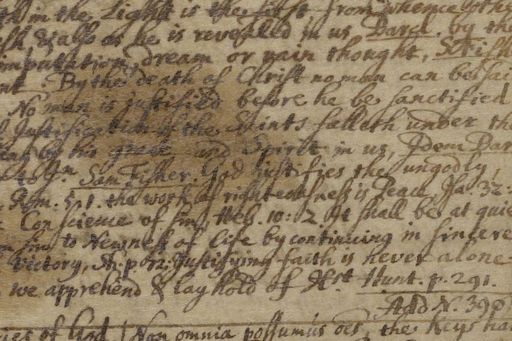 in the Light is the first from whence othe
& also as he is revealed in us, Barcl. by the
imputation, dream or vain thought, S. Fish
By the death of Christ no man can be sai
No man is justified before he be sanctified
Justification of the Saints falleth under the
his grace and Spirit in us, Idem Bar
Sam. Fisher. God justifies the ungodly,
Rom: 5.1. the work of righteousness is peace Isa. 32:
Conscience of sin, Heb. 10:2. It shall be at quie
to Newness of Life by continuing in sincere
victory, Justifying faith is never alone
we apprehend & lay hold of Hunt. p. 291.
Add N. 390
of God Non omnia possumus oes, the Keys ha